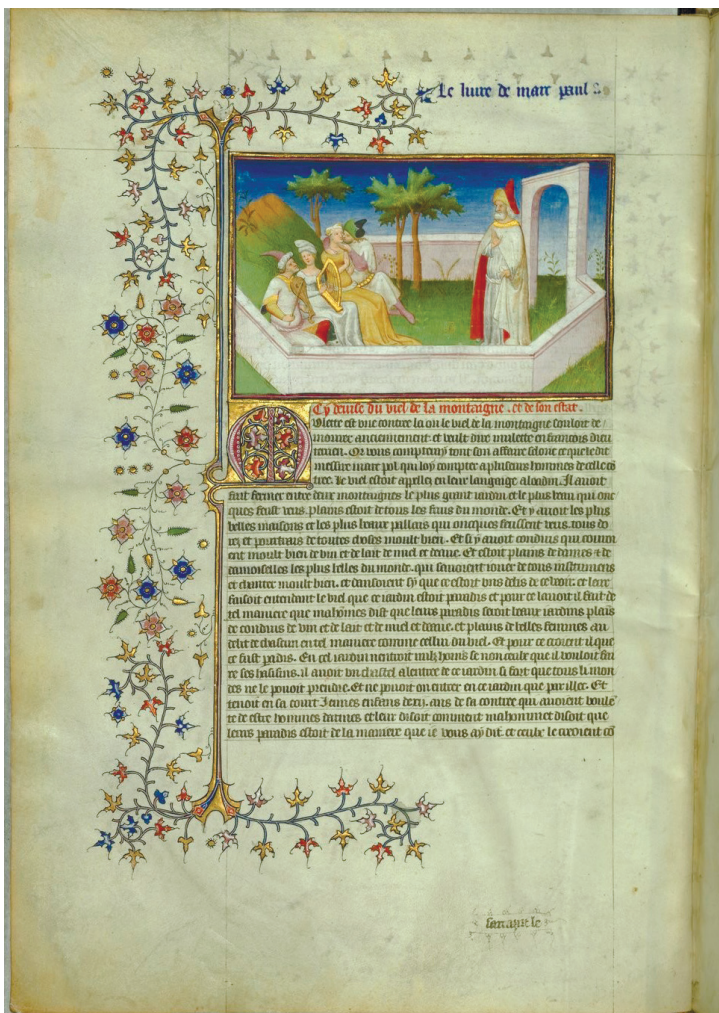 Le liure de marc paul
Cy deuise du viel de la montaigne. et de son estat.
Mlette est vne contree la ou le viel de la montaigne souloit de
mourer anciennement. et veult dire mulette en francois dieu
terrien. Or vous compteray tout son affaire selonc ce que le dit
messire marc pol qui loy compter a plusieurs hommes de celle co
tree. Le viel estoit appellez en leur language aloadin. Il auoit
fait fermer entre deux montaignes le plus grant iardin et le plus beau qui onc
ques feust veus. plains estoit de tous les fruis du monde. Et y auoit les plus
belles maisons et les plus beaux pallais qui oncques feussent veus. tous do
rez et pourtrais de toutes choses moult bien. Et si y auoit conduis qui couroi
ent moult bien de vin et de lait de miel et deaue. Et estoit plains de dames et de
damoiselles les plus belles du monde. qui sauoient iouer de tous instrumens
et chanter moult bien. et dansoient sy que ce estoit vns delis de ce veoir. et leur
faisoit entendant le viel que ce iardin estoit paradis et pour ce lauoit il fait de
tel maniere que mahommes dist que leurs paradis seroit beaux iardins plais
de conduis de vin et de lait et de miel et deaue. et plains de belles femmes au
delit de chascun en tel maniere comme cellui du viel. Et pour ce croient il que
ce fust padis. En cel iardin nentroit nulz homs se non ceulx que il vouloit fai
re ses hasisins. il auoit vn chastel a lentree de ce iardin si fort que tous li mon
des ne le pouoit prendre. Et ne pouoit on entrer en ce iardin que par illec. Et
tenoit en sa court Jeunes enfans de xij. ans de sa contree qui auoient voulē
te de estre hommes darmes et leur disoit comment mahommet disoit que
leurs paradis estoit de la maniere que ie vous ay dit. et ceulx le creoient co